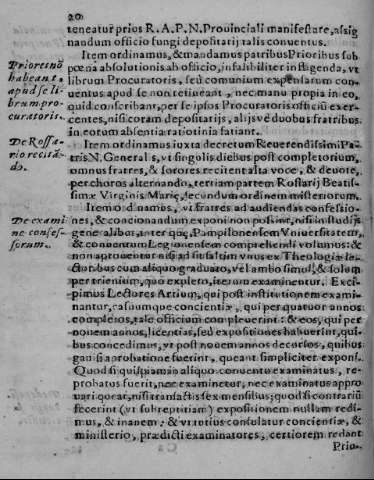 20
teneatur prius R. A. P. N. Prouinciali manifestare, assig
nandum officio fungi depositarij talis conuentus.
Item ordinamus, & mandamus patribus Prioribus sub
Priores nõ
pœna absolutionis ab officio, infalibiliter infligenda, vt
habeant
librum Procuratoris, seu comunium expensarum con-
apud se li-
uentus apud se non retineant, nec manu propia in eo,
brum pro-
quid conscribant, per se ipsos Procuratoris officiũ exer-
curatoris.
centes, nisi coram depositarijs, alijsvè duobus fratribus
in eorum absentia ratiotinia fatiant.
De Rossa-
Item ordinamus iuxta decretum Reuerendissimi Pa-
rio recitã-
tris N. Generalis, vt singolis diebus post completorium,
do.
omnus fratres, & sorores recitent alta voce, & deuote,
per choros alternando, tertiam partem Rossarij Beatis-
simæ Virginis Mariæ, secundum ordinem misteriorum.
Item ordinamus, vt fratres ad audiendas confessio-
De exami
nes, & concionandum exponi non possint, nisi in studijs
ne confes-
generalibus, inter quæ, Pampilonensem Vniuersitatem,
sorum.
& conuentum Legionensem comprehendi volumus: &
non approuentur nisi ad sit saltim vnus ex Theologiæ le-
ctoribus cum aliquo graduato, vel ambo simol, & solum
per trienium, quo expleto, iterum examinentur. Exci-
pimus Lectores Artium, qui post institutionem exami-
nantur, casuumque concientiæ, qui per quatuor annos
completos, tale officium compleuerint: & eos, qui per
nonem annos, licentias, seu expositiones habuerint, qui-
bus concedimus, vt post nouem annos decursos, quibus
gaui si aprobatione fuerint, queant simpliciter exponi.
Quod si quispiam in aliquo conuento examinatus, re-
probatus fuerit, nec examinetur, nec examinatus appro
uari queat, nisi transactis sex mensibus; quod si contrariũ
fecerint (vt subreptitiam) expositionem nullam redi-
mus, & inanem: & vt totius consulatur concientiæ, &
ministerio, prædicti examinatores, certiorem redant
Prio-